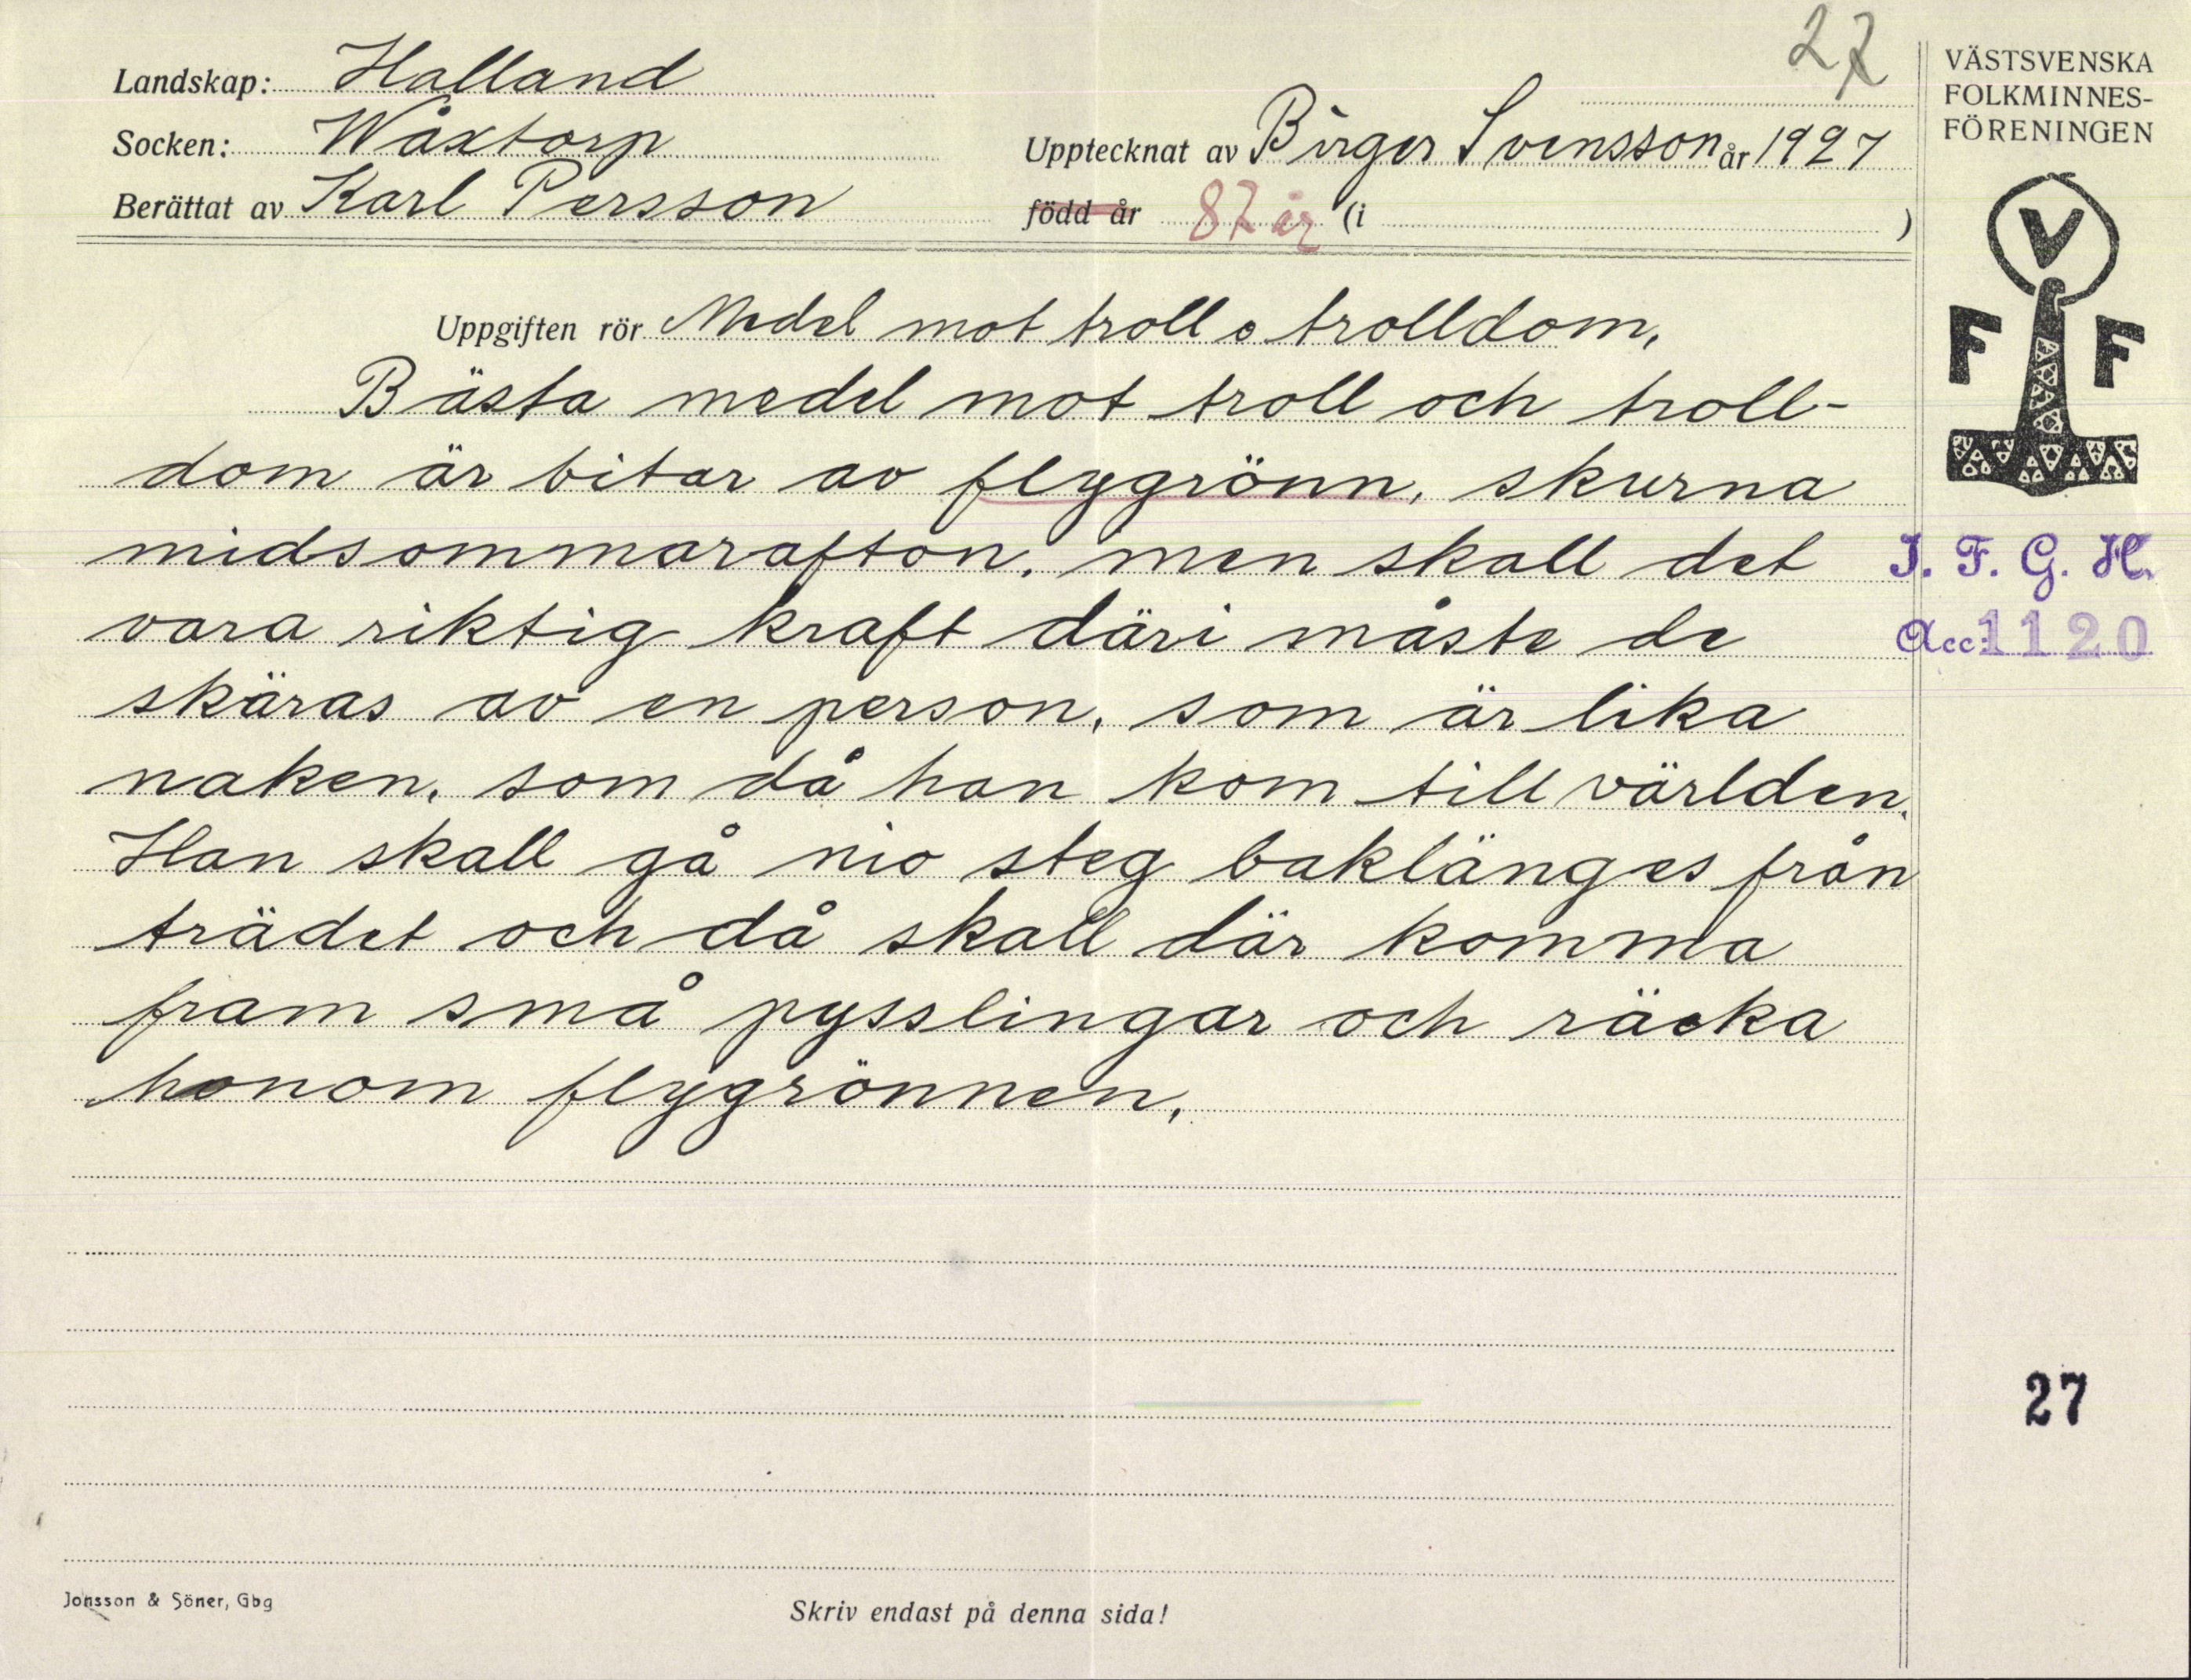 27
Landskap: Halland
Socken: Wåxtorp
Upptecknat av Birger Svensson år 1927
Berättat av Karl Persson
född år 87 år (i )
VÄSTSVENSKA
FOLKMINNES-
FÖRENINGEN
V
F F
Uppgiften rör Medel mot troll o trolldom.
Bästa medel mot troll och troll-
dom är bitar av flygrönn, skurna
midsommarafton, men skall det
vara riktig kraft däri måste de
skäras av en person, som är lika
naken, som då han kom till världen.
Han skall gå nio steg baklänges från
trädet och då skall där komma
fram små pysslingar och räcka
honom flygrönnen.
I. F. G. H.
Acc: 1120
27
Jonsson & Söner, Gbg
Skriv endast på denna sida!